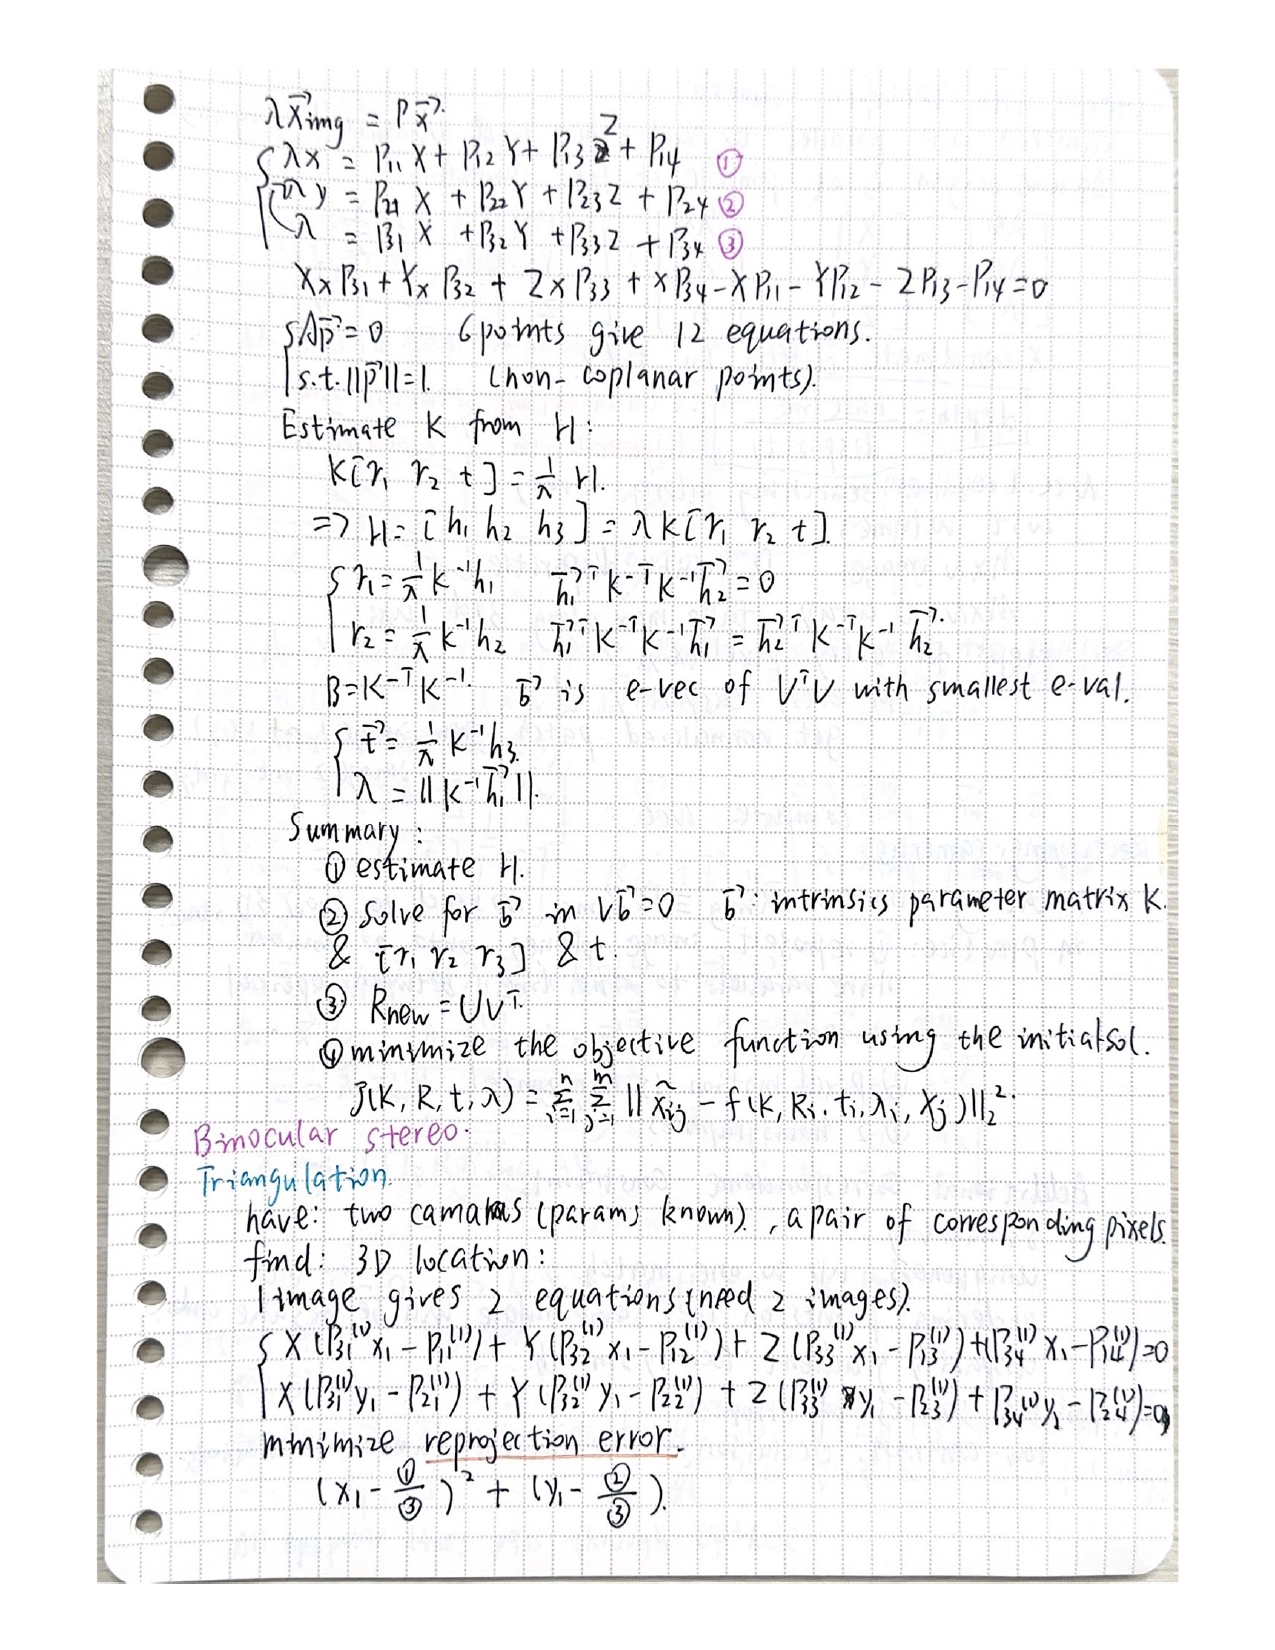 λx⃗img = Px⃗.
{ λx = P11 X + P12 Y + P13 Z + P14 ①
λy = P21 X + P22 Y + P23 Z + P24 ②
λ = P31 X + P32 Y + P33 Z + P34 ③
XxP31 + YxP32 + ZxP33 + xP34 - XP11 - YP12 - ZP13 - P14 = 0
{ Ap⃗ = 0 6 points give 12 equations.
s.t. ||p⃗|| = 1. (non-coplanar points).
Estimate K from H:
K[r1 r2 t] = 1/λ H.
=> H = [h1 h2 h3] = λK[r1 r2 t].
{ r1 = 1/λ K⁻¹h1 h⃗1ᵀK⁻ᵀK⁻¹h⃗2 = 0
r2 = 1/λ K⁻¹h2 h⃗1ᵀK⁻ᵀK⁻¹h⃗1 = h⃗2ᵀK⁻ᵀK⁻¹h⃗2.
B = K⁻ᵀK⁻¹. b⃗ is e-vec of VᵀV with smallest e-val.
{ t⃗ = 1/λ K⁻¹h3.
λ = ||K⁻¹h⃗1||.
Summary:
① estimate H.
② solve for b⃗ in Vb⃗ = 0 b⃗: intrinsics parameter matrix K.
& [r1 r2 r3] & t.
③ Rnew = UVᵀ.
④ minimize the objective function using the initial sol.
J(K, R, t, λ) = Σ_{i=1}^{n} Σ_{j=1}^{m} || x̃ij - f(K, Ri, ti, λi, Xj) ||₂².
Binocular stereo.
Triangulation.
have: two camaras (params known), a pair of corresponding pixels.
find: 3D location:
1 image gives 2 equations (need 2 images).
{ X(P31⁽¹⁾x1 - P11⁽¹⁾) + Y(P32⁽¹⁾x1 - P12⁽¹⁾) + Z(P33⁽¹⁾x1 - P13⁽¹⁾) + (P34⁽¹⁾x1 - P14⁽¹⁾) = 0
X(P31⁽¹⁾y1 - P21⁽¹⁾) + Y(P32⁽¹⁾y1 - P22⁽¹⁾) + Z(P33⁽¹⁾y1 - P23⁽¹⁾) + P34⁽¹⁾y1 - P24⁽¹⁾) = 0
minimize reprojection error.
(x1 - ①/③)² + (y1 - ②/③).